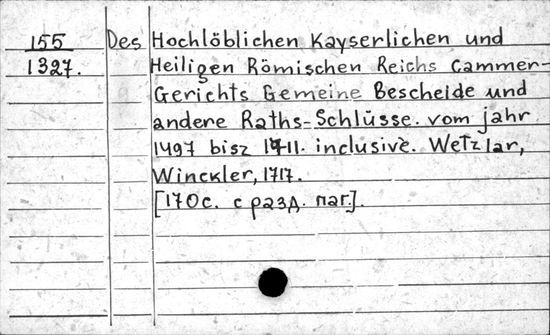 155 Des Hochlöblichen Kayserlichen und
1327. Heiligen Römischen Reichs Cammer-
Gerichts Gemeine Bescheide und
andere Raths-Schlüsse. vom jahr
1497 bisz 1711. inclusive. Wetzlar,
Winckler, 1717.
[170с. с разд. паг.].